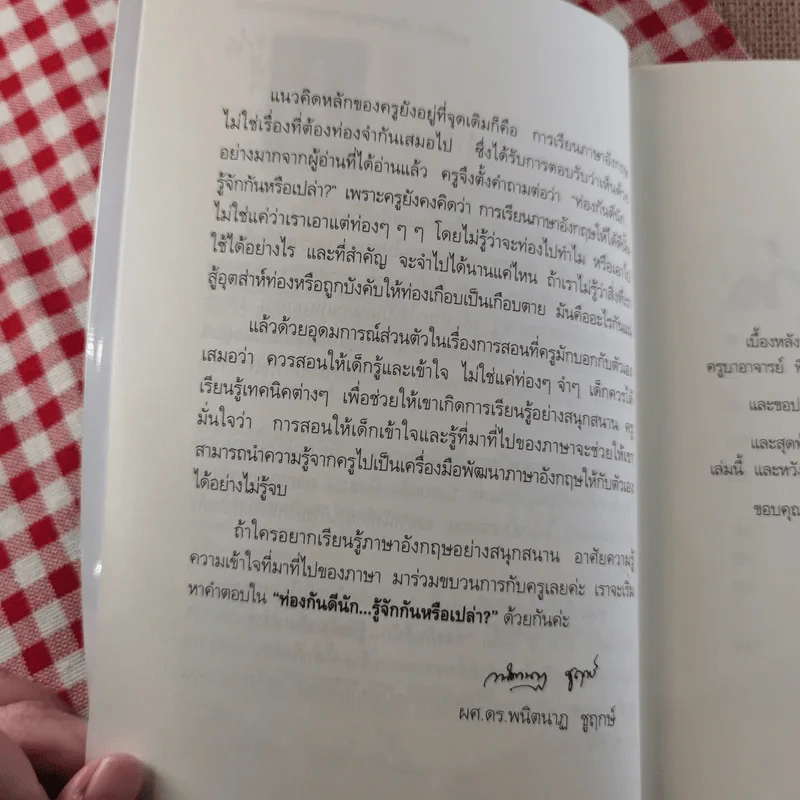 แนวคิดหลักของครูยังอยู่ที่จุดเดิมก็คือ การเรียนภาษาอังกฤษ
ไม่ใช่เรื่องที่ต้องท่องจำกันเสมอไป ซึ่งได้รับการตอบรับว่าเห็นด้วย
อย่างมากจากผู้อ่านที่ได้อ่านแล้ว ครูจึงตั้งคำถามต่อว่า “ท่องกันดีนัก
รู้จักกันหรือเปล่า?” เพราะครูยังคงคิดว่า การเรียนภาษาอังกฤษให้ได้ดีนั้น
ไม่ใช่แค่ว่าเราเอาแต่ท่องๆ ๆ ๆ โดยไม่รู้ว่าจะท่องไปทำไม หรือเอาไป
ใช้ได้อย่างไร และที่สำคัญ จะจำไปได้นานแค่ไหน ถ้าเราไม่รู้ว่าสิ่งที่เรา
สู้อุตส่าห์ท่องหรือถูกบังคับให้ท่องเกือบเป็นเกือบตาย มันคืออะไรกันแน่
แล้วด้วยอุดมการณ์ส่วนตัวในเรื่องการสอนที่ครูมักบอกกับตัวเอง
เสมอว่า ควรสอนให้เด็กรู้และเข้าใจ ไม่ใช่แค่ท่องๆ จำๆ เด็กควรได้
เรียนรู้เทคนิคต่างๆ เพื่อช่วยให้เขาเกิดการเรียนรู้อย่างสนุกสนาน ครู
มั่นใจว่า การสอนให้เด็กเข้าใจและรู้ที่มาที่ไปของภาษาจะช่วยให้เขา
สามารถนำความรู้จากครูไปเป็นเครื่องมือพัฒนาภาษาอังกฤษให้กับตัวเอง
ได้อย่างไม่รู้จบ
ถ้าใครอยากเรียนรู้ภาษาอังกฤษอย่างสนุกสนาน อาศัยความรู้
ความเข้าใจที่มาที่ไปของภาษา มาร่วมขบวนการกับครูเลยค่ะ เราจะเริ่ม
หาคำตอบใน “ท่องกันดีนัก...รู้จักกันหรือเปล่า?” ด้วยกันค่ะ
พนิตนาฏ ชูฤกษ์
ผศ.ดร.พนิตนาฏ ชูฤกษ์
เบื้องหลัง
ครูบาอาจารย์
และขอ
และสุด
เล่มนี้ และหวัง
ขอบคุณ